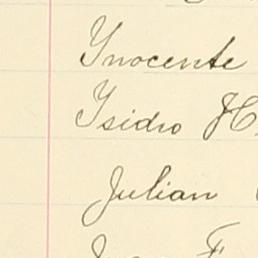 Ynocente
Ysidro H
Julian